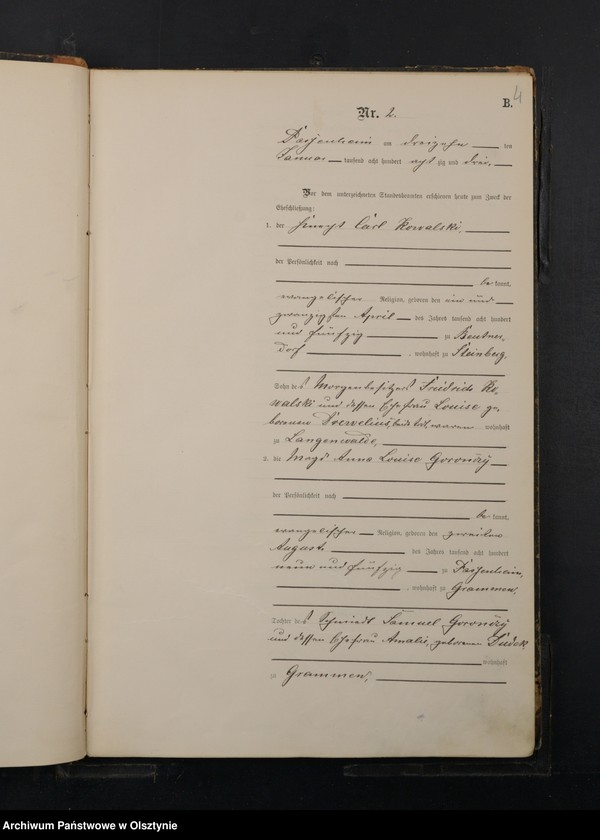 B.
4
Nr. 2.
Passenheim am dreizehn ten
Januar tausend acht hundert acht zig und drei.
Vor dem unterzeichneten Standesbeamten erschienen heute zum Zweck der
Eheschließung:
1. der Knecht Carl Kowalski,
der Persönlichkeit nach
be kannt,
evangelischer Religion, geboren den ein und
zwanzigsten April des Jahres tausend acht hundert
und fünfzig zu
dorf, wohnhaft zu Steinberg,
Sohn des Morgenbesitzers Friedrich Ko-
walski und dessen Ehefrau Louise ge-
borenen beide todt, waren wohnhaft
zu Langenwalde,
2. die Magd Anna Louise Goronczy
der Persönlichkeit nach
be kannt,
evangelischer Religion, geboren den zweiten
August des Jahres tausend acht hundert
neun und fünfzig zu Passenheim,
, wohnhaft zu Grammen,
Tochter des Schmiedt Samuel Goronczy
und dessen Ehefrau Amalie, geborenen
wohnhaft
zu Grammen,
Archiwum Państwowe w Olsztynie